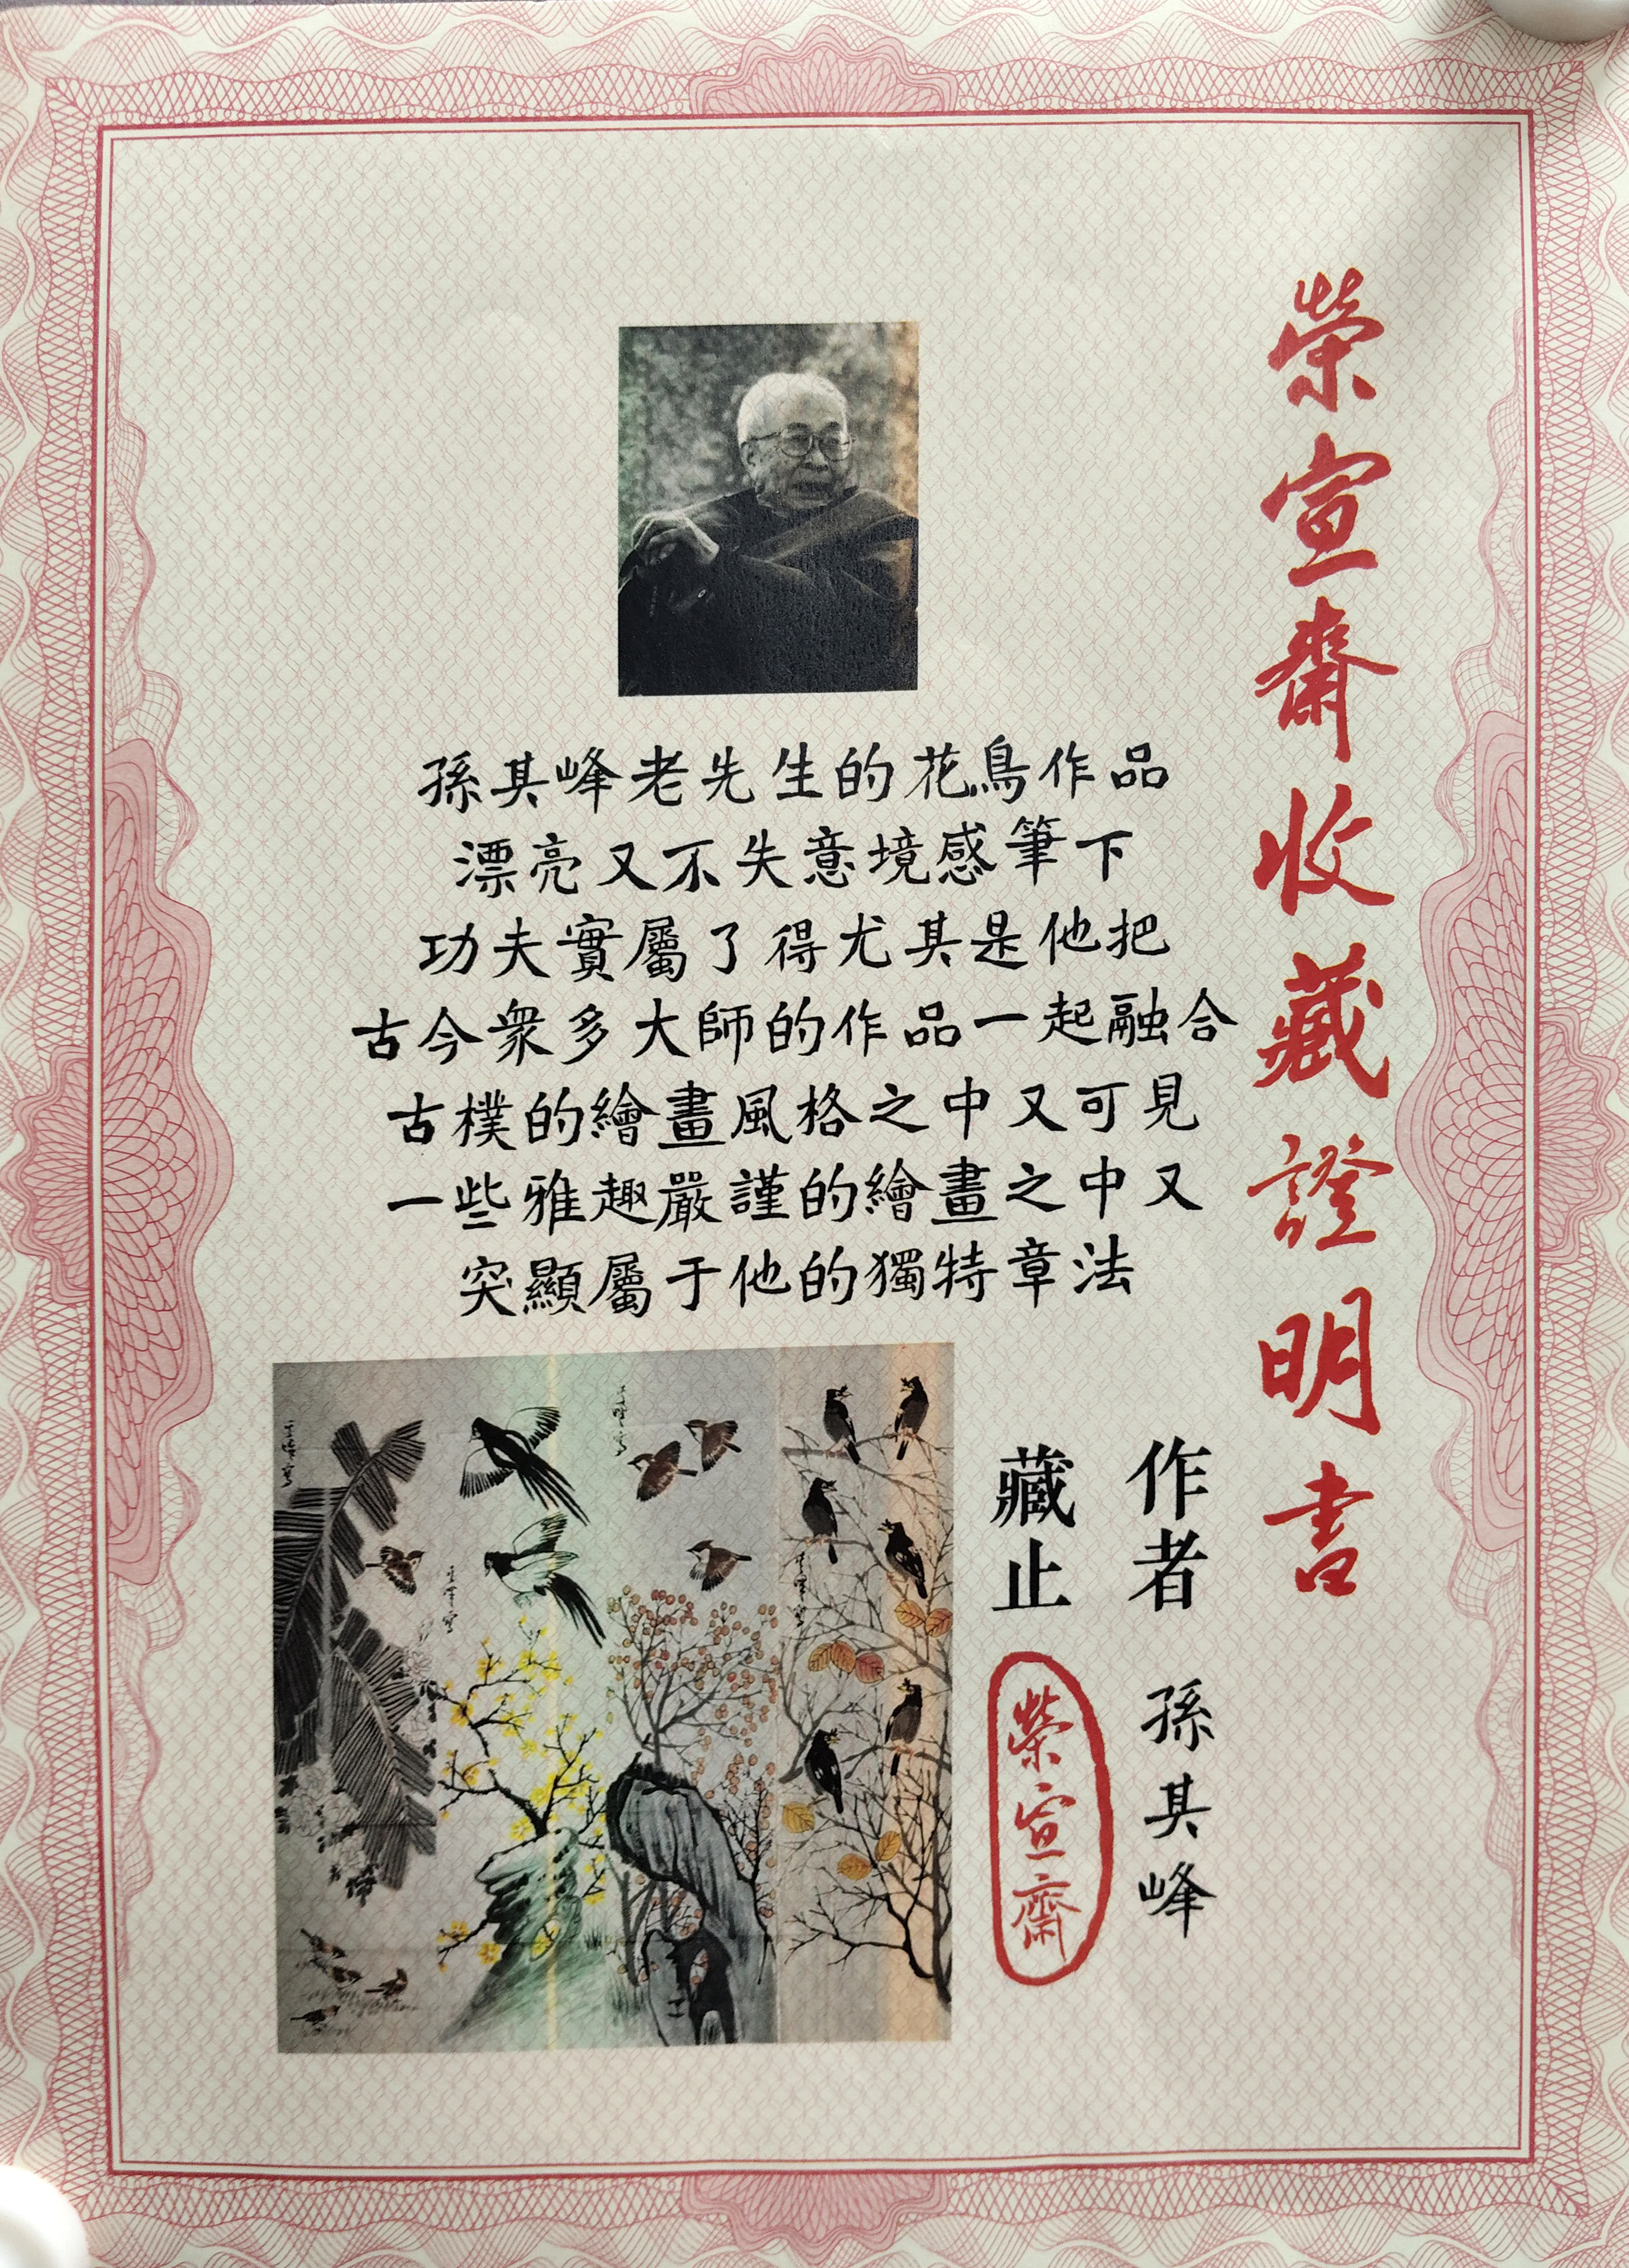 榮宣齋收藏證明書
孫其峰老先生的花鳥作品
漂亮又不失意境感筆下
功夫實屬了得尤其是他把
古今衆多大師的作品一起融合
古樸的繪畫風格之中又可見
一些雅趣嚴謹的繪畫之中又
突顯屬于他的獨特章法
作者 孫其峰
藏止 榮宣齋